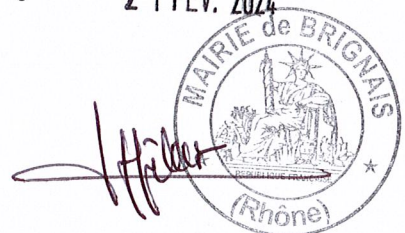 FEV. 2024
MAIRIE de BRIGNAIS
REPUBLIQUE FRANCAISE
(Rhône)